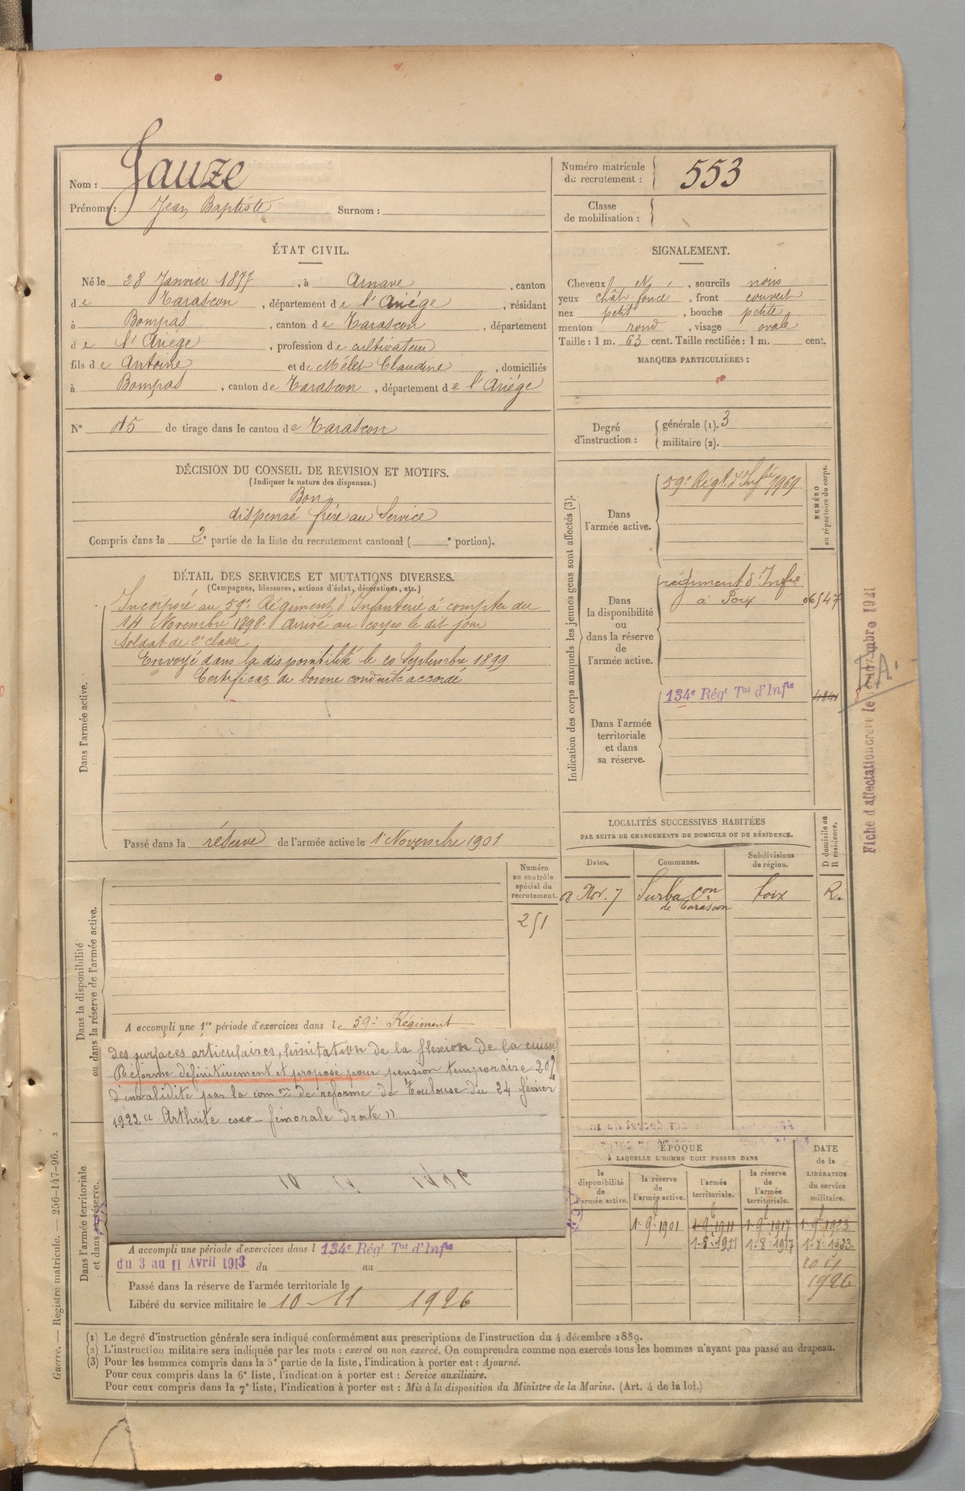 Nom : Jauze
Prénoms : Jean Baptiste Surnom :
Numéro matricule du recrutement : 553
Classe de mobilisation :
ÉTAT CIVIL.
Né le 28 Janvier 1877, à Arnave, canton
de Tarascon, département de l'Ariège, résidant
à Bompas, canton de Tarascon, département
de l'Ariège, profession de cultivateur
fils de Antoine et de Mélet Claudine, domiciliés
à Bompas, canton de Tarascon, département de l'Ariège
N° 15 de tirage dans le canton de Tarascon
SIGNALEMENT.
Cheveux et, sourcils noirs
yeux chât. foncé, front couvert
nez petit, bouche petite
menton rond, visage ovale
Taille : 1 m. 63 cent. Taille rectifiée : 1 m. cent.
MARQUES PARTICULIÈRES :
Degré d'instruction : générale (1). 3
militaire (2).
DÉCISION DU CONSEIL DE REVISION ET MOTIFS.
(Indiquer la nature des dispenses.)
Bon
dispensé frère au Service
Compris dans la 2e partie de la liste du recrutement cantonal ( e portion).
DÉTAIL DES SERVICES ET MUTATIONS DIVERSES.
(Campagnes, blessures, actions d'éclat, décorations, etc.)
Dans l'armée active.
Incorporé au 59e Régiment d'Infanterie à compter du
14 Novembre 1898. Arrivé au corps le dit jour
Soldat de 2e classe
Envoyé dans la disponibilité le 20 Septembre 1899
Certificat de bonne conduite accordé
Passé dans la réserve de l'armée active le 1er Novembre 1901
Indication des corps auxquels les jeunes gens sont affectés (3).
NUMÉRO au répertoire du corps.
Dans l'armée active.
59e Régt d'Infie 7969
Dans la disponibilité ou dans la réserve de l'armée active.
régiment d'Infie
à Foix 06547
Dans l'armée territoriale et dans sa réserve.
134e Régt Tal d'Infie
Fiche d'affectation créée le
LOCALITÉS SUCCESSIVES HABITÉES
PAR SUITE DE CHANGEMENTS DE DOMICILE OU DE RÉSIDENCE.
Dates. Communes. Subdivisions de région. D domicile ou R résidence.
8 Nov. 7 Surba Con de Tarascon Foix R.
Dans la disponibilité ou dans la réserve de l'armée active.
Numéro au contrôle spécial du recrutement.
251
A accompli une 1re période d'exercices dans le 59e Régiment
des surfaces articulaires, limitation de la flexion de la cuisse
Réformé définitivement et proposé pour pension temporaire 20%
d'invalidité par la comon de réforme de Toulouse du 24 février
1922 "Arthrite coxo-fémorale droite"
Dans l'armée territoriale et dans sa réserve.
A accompli une période d'exercices dans l 134e Régt Tal d'Infie
du 3 au 11 Avril 1913 du au
Passé dans la réserve de l'armée territoriale le
Libéré du service militaire le 10-11 1926
ÉPOQUE
À LAQUELLE L'HOMME DOIT PASSER DANS
la disponibilité de l'armée active. la réserve de l'armée active. l'armée territoriale. la réserve de l'armée territoriale.
DATE de la LIBÉRATION du service militaire.
1-9-1901 1-9-1911 1-9-1917 1-9-1923
1-8-1911 1-8-1917 1-8-1923
10-11
1926
(1) Le degré d'instruction générale sera indiqué conformément aux prescriptions de l'instruction du 4 décembre 1889.
(2) L'instruction militaire sera indiquée par les mots : exercé ou non exercé. On comprendra comme non exercés tous les hommes n'ayant pas passé au drapeau.
(3) Pour les hommes compris dans la 5e partie de la liste, l'indication à porter est : Ajourné.
Pour ceux compris dans la 6e liste, l'indication à porter est : Service auxiliaire.
Pour ceux compris dans la 7e liste, l'indication à porter est : Mis à la disposition du Ministre de la Marine. (Art. 4 de la loi.)
Guerre. — Registre matricule. — 256-147-96.